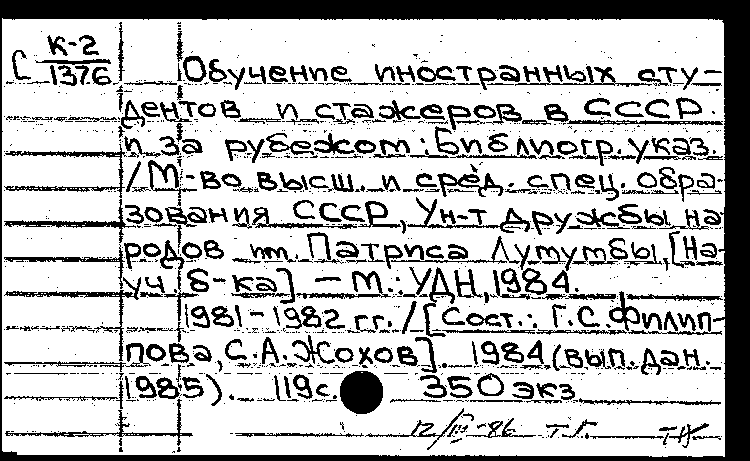 С К-2
1376
Обучение иностранных сту-
дентов и стажеров в СССР
и за рубежом: Библиогр. указ.
/М-во высш. и сред. спец. обра-
зования СССР, Ун-т дружбы на-
родов им. Патриса Лумумбы, [На-
уч. б-ка] – М.: УДН, 1984.
1981-1982 гг. / [Сост.: Г.С. Филип-
пова, С.А. Жохов]. 1984 (вып. дан.
1985). 119с. 350 экз
12/III-86 т.г.